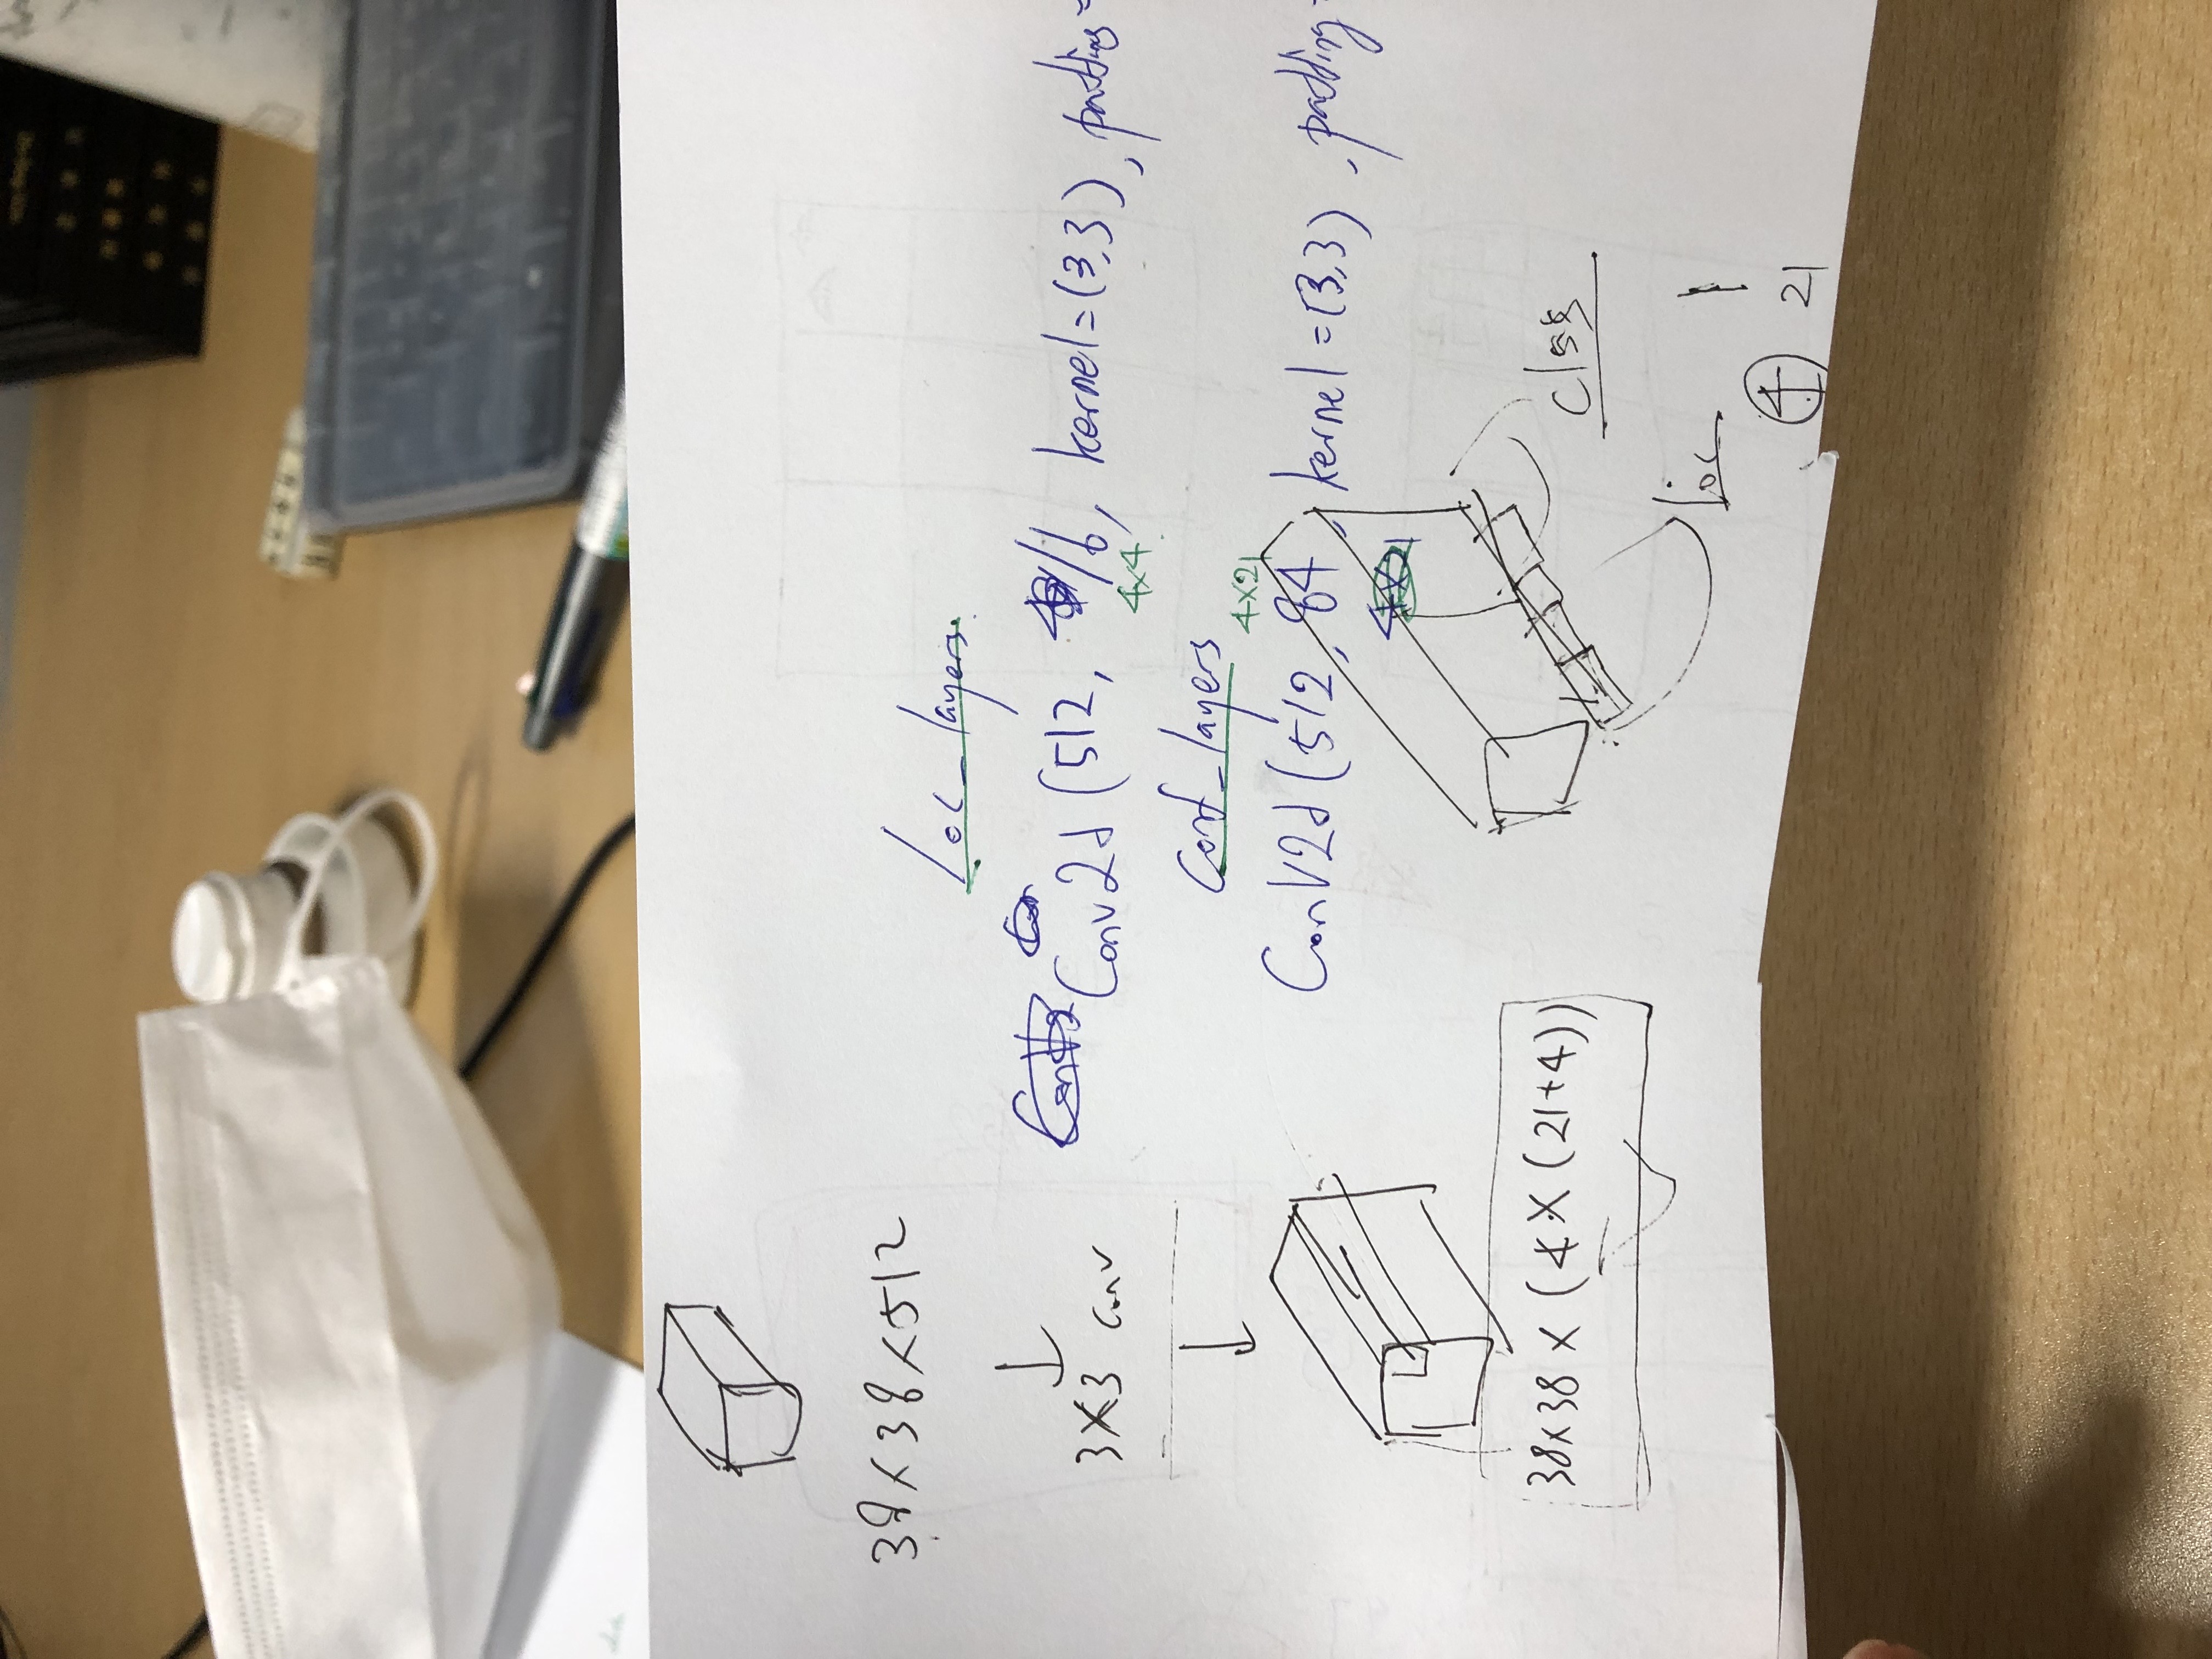 38×38×512
3×3 conv
38×38 × (4 × (21+4))
loc_layers
Conv2d (512, 16, kernel=(3,3), padding=
4×4
conf_layers
4×21
Conv2d (512, 84, kernel=(3,3), padding=
4×21
class
loc
4 21